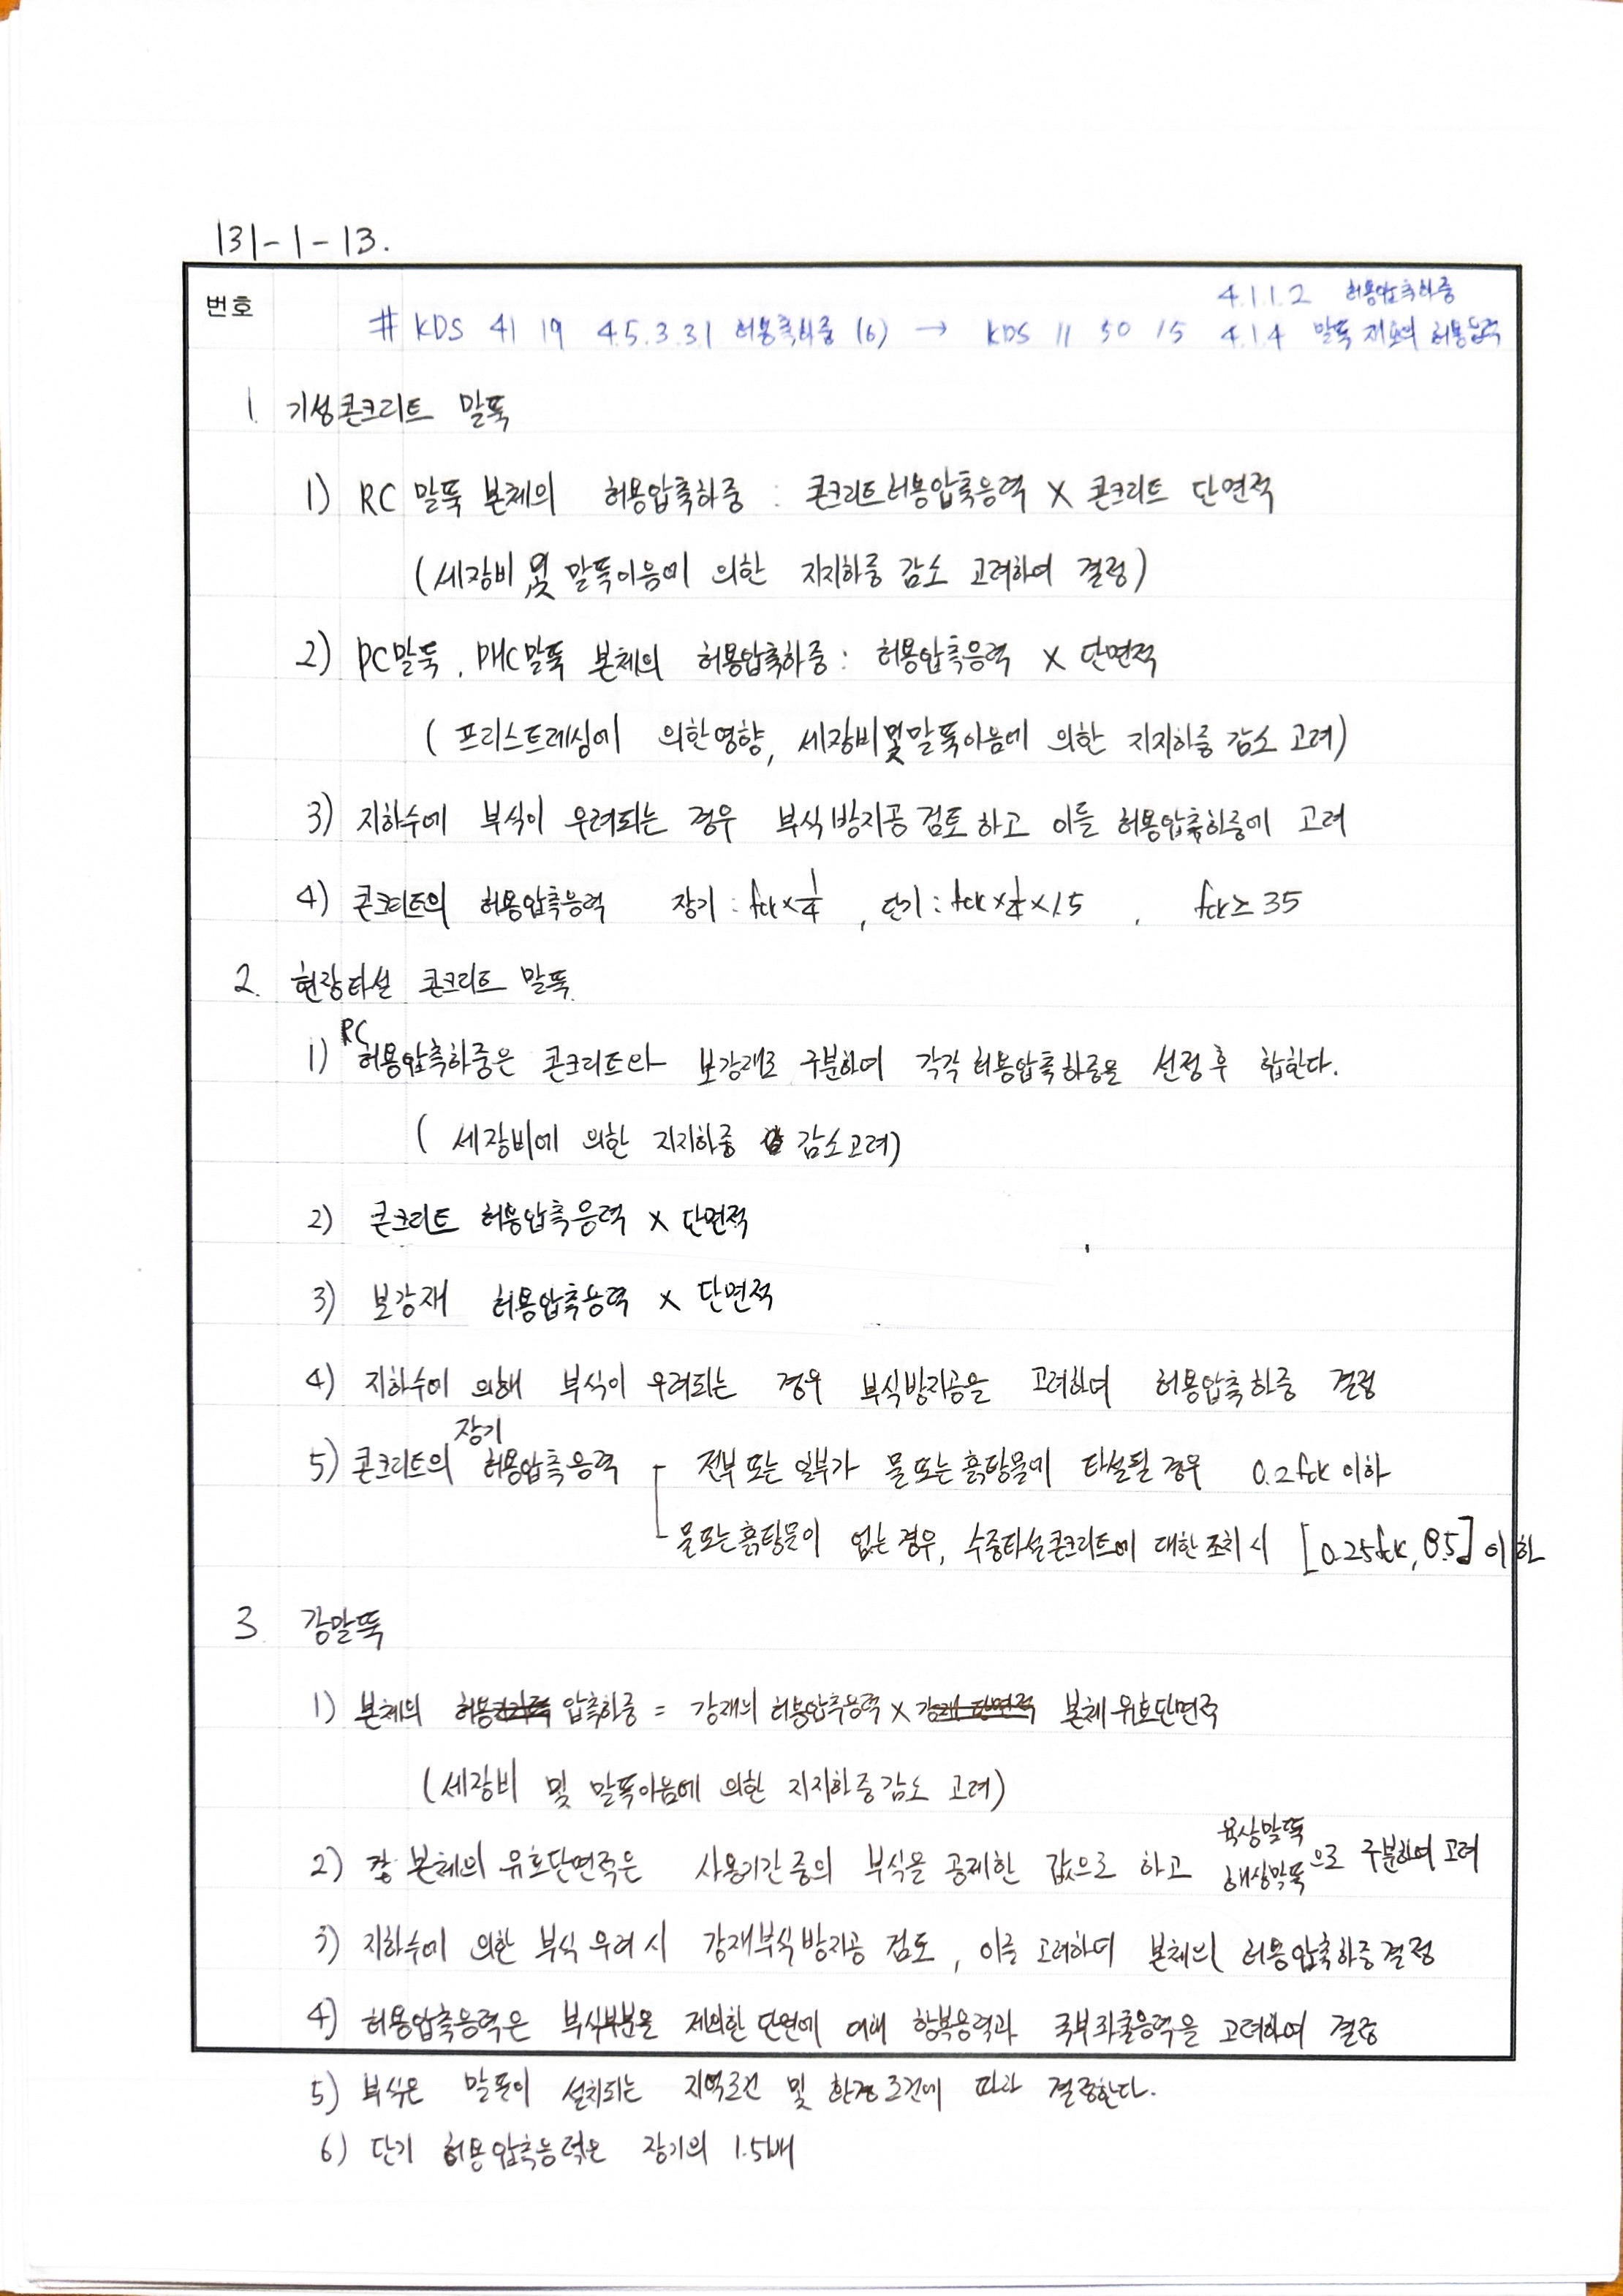 131-1-13.
번호
4.1.1.2 허용압축하중
# KDS 41 19 4.5.3.3.1 허용축하중 (6) → KDS 11 50 15 4.1.4 말뚝 재료의 허용응력
1. 기성콘크리트 말뚝
1) RC 말뚝 본체의 허용압축하중 : 콘크리트허용압축응력 × 콘크리트 단면적
(세장비 및 말뚝이음에 의한 지지하중 감소 고려하여 결정)
2) PC말뚝, PHC말뚝 본체의 허용압축하중 : 허용압축응력 × 단면적
( 프리스트레싱에 의한영향, 세장비및말뚝이음에 의한 지지하중 감소 고려)
3) 지하수에 부식이 우려되는 경우 부식방지공 검토 하고 이를 허용압축하중에 고려
4) 콘크리트의 허용압축응력 장기 : fck×1/4 , 단기 : fck×1/4×1.5 , fck≥35
2. 현장타설 콘크리트 말뚝
RC
1) 허용압축하중은 콘크리트와 보강재로 구분하여 각각 허용압축하중을 선정 후 합한다.
( 세장비에 의한 지지하중 감소고려)
2) 콘크리트 허용압축응력 × 단면적
3) 보강재 허용압축응력 × 단면적
4) 지하수에 의해 부식이 우려되는 경우 부식방지공을 고려하여 허용압축하중 결정
장기
5) 콘크리트의 허용압축응력 전부 또는 일부가 물 또는 흙탕물에 타설될 경우 0.2fck 이하
물또는흙탕물이 없는 경우, 수중타설콘크리트에 대한 조치 시 [0.25fck, 8.5] 이하
3. 강말뚝
1) 본체의 허용 압축하중 = 강재의 허용압축응력 × 본체 유효단면적
(세장비 및 말뚝이음에 의한 지지하중감소 고려)
육상말뚝
2) 본체의 유효단면적은 사용기간 중의 부식을 공제한 값으로 하고 해상말뚝으로 구분하여 고려
3) 지하수에 의한 부식 우려 시 강재부식방지공 검토, 이를 고려하여 본체의 허용압축하중결정
4) 허용압축응력은 부식부분을 제외한 단면에 대해 항복응력과 국부좌굴응력을 고려하여 결정
5) 부식은 말뚝이 설치되는 지역조건 및 환경조건에 따라 결정한다.
6) 단기 허용압축응력은 장기의 1.5배